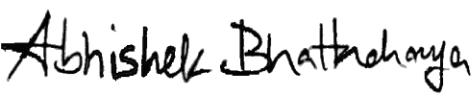 Abhishek Bhattacharya